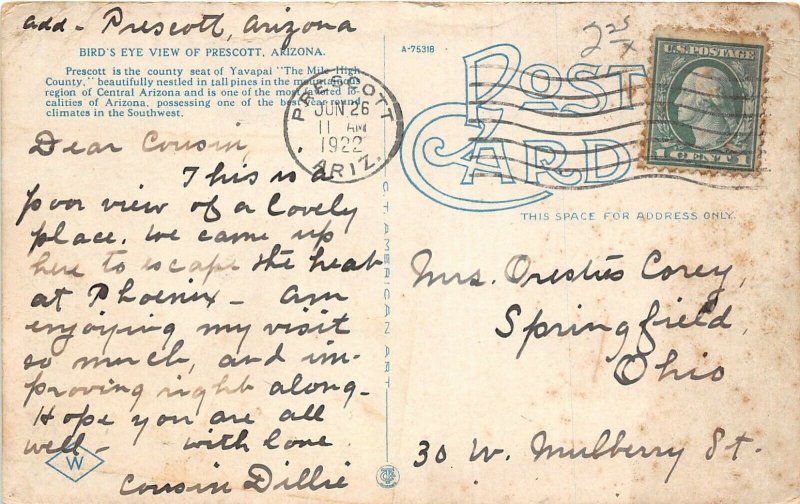 add - Prescott, Arizona
BIRD'S EYE VIEW OF PRESCOTT, ARIZONA.
Prescott is the county seat of Yavapai "The Mile-High
County," beautifully nestled in tall pines in the mountainous
region of Central Arizona and is one of the most favored lo-
calities of Arizona, possessing one of the best year round
climates in the Southwest.
Dear Cousin,
This is a
poor view of a lovely
place. We came up
here to escape the heat
at Phoenix - am
enjoying my visit
so much, and im-
proving right along -
Hope you are all
well - with love
Cousin Dillie
W
A-75318
PRESCOTT
JUN 26
11 AM
1922
ARIZ.
C.T. AMERICAN ART
POST
CARD
U.S. POSTAGE
1 CENT 1
THIS SPACE FOR ADDRESS ONLY.
Mrs. Orestus Corey,
Springfield,
Ohio
30 W. Mulberry St.